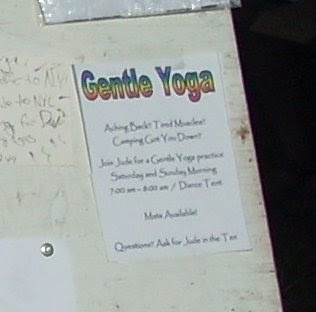 to NY
to NYC
for
Gentle Yoga
Aching Back? Tired Muscles?
Camping Got You Down?
Join Jude for a Gentle Yoga practice
Saturday and Sunday Morning
7:00 am - 8:00 am / Dance Tent
Mats Available!
Questions? Ask for Jude in the Ten